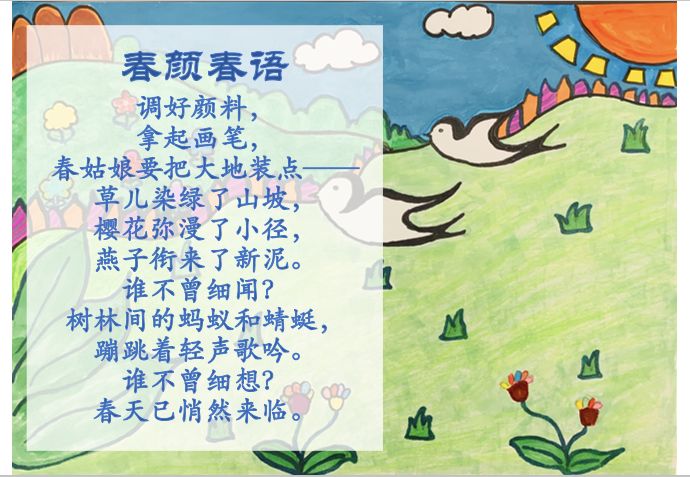 春颜春语
调好颜料，
拿起画笔，
春姑娘要把大地装点——
草儿染绿了山坡，
樱花弥漫了小径，
燕子衔来了新泥。
谁不曾细闻？
树林间的蚂蚁和蜻蜓，
蹦跳着轻声歌吟。
谁不曾细想？
春天已悄然来临。